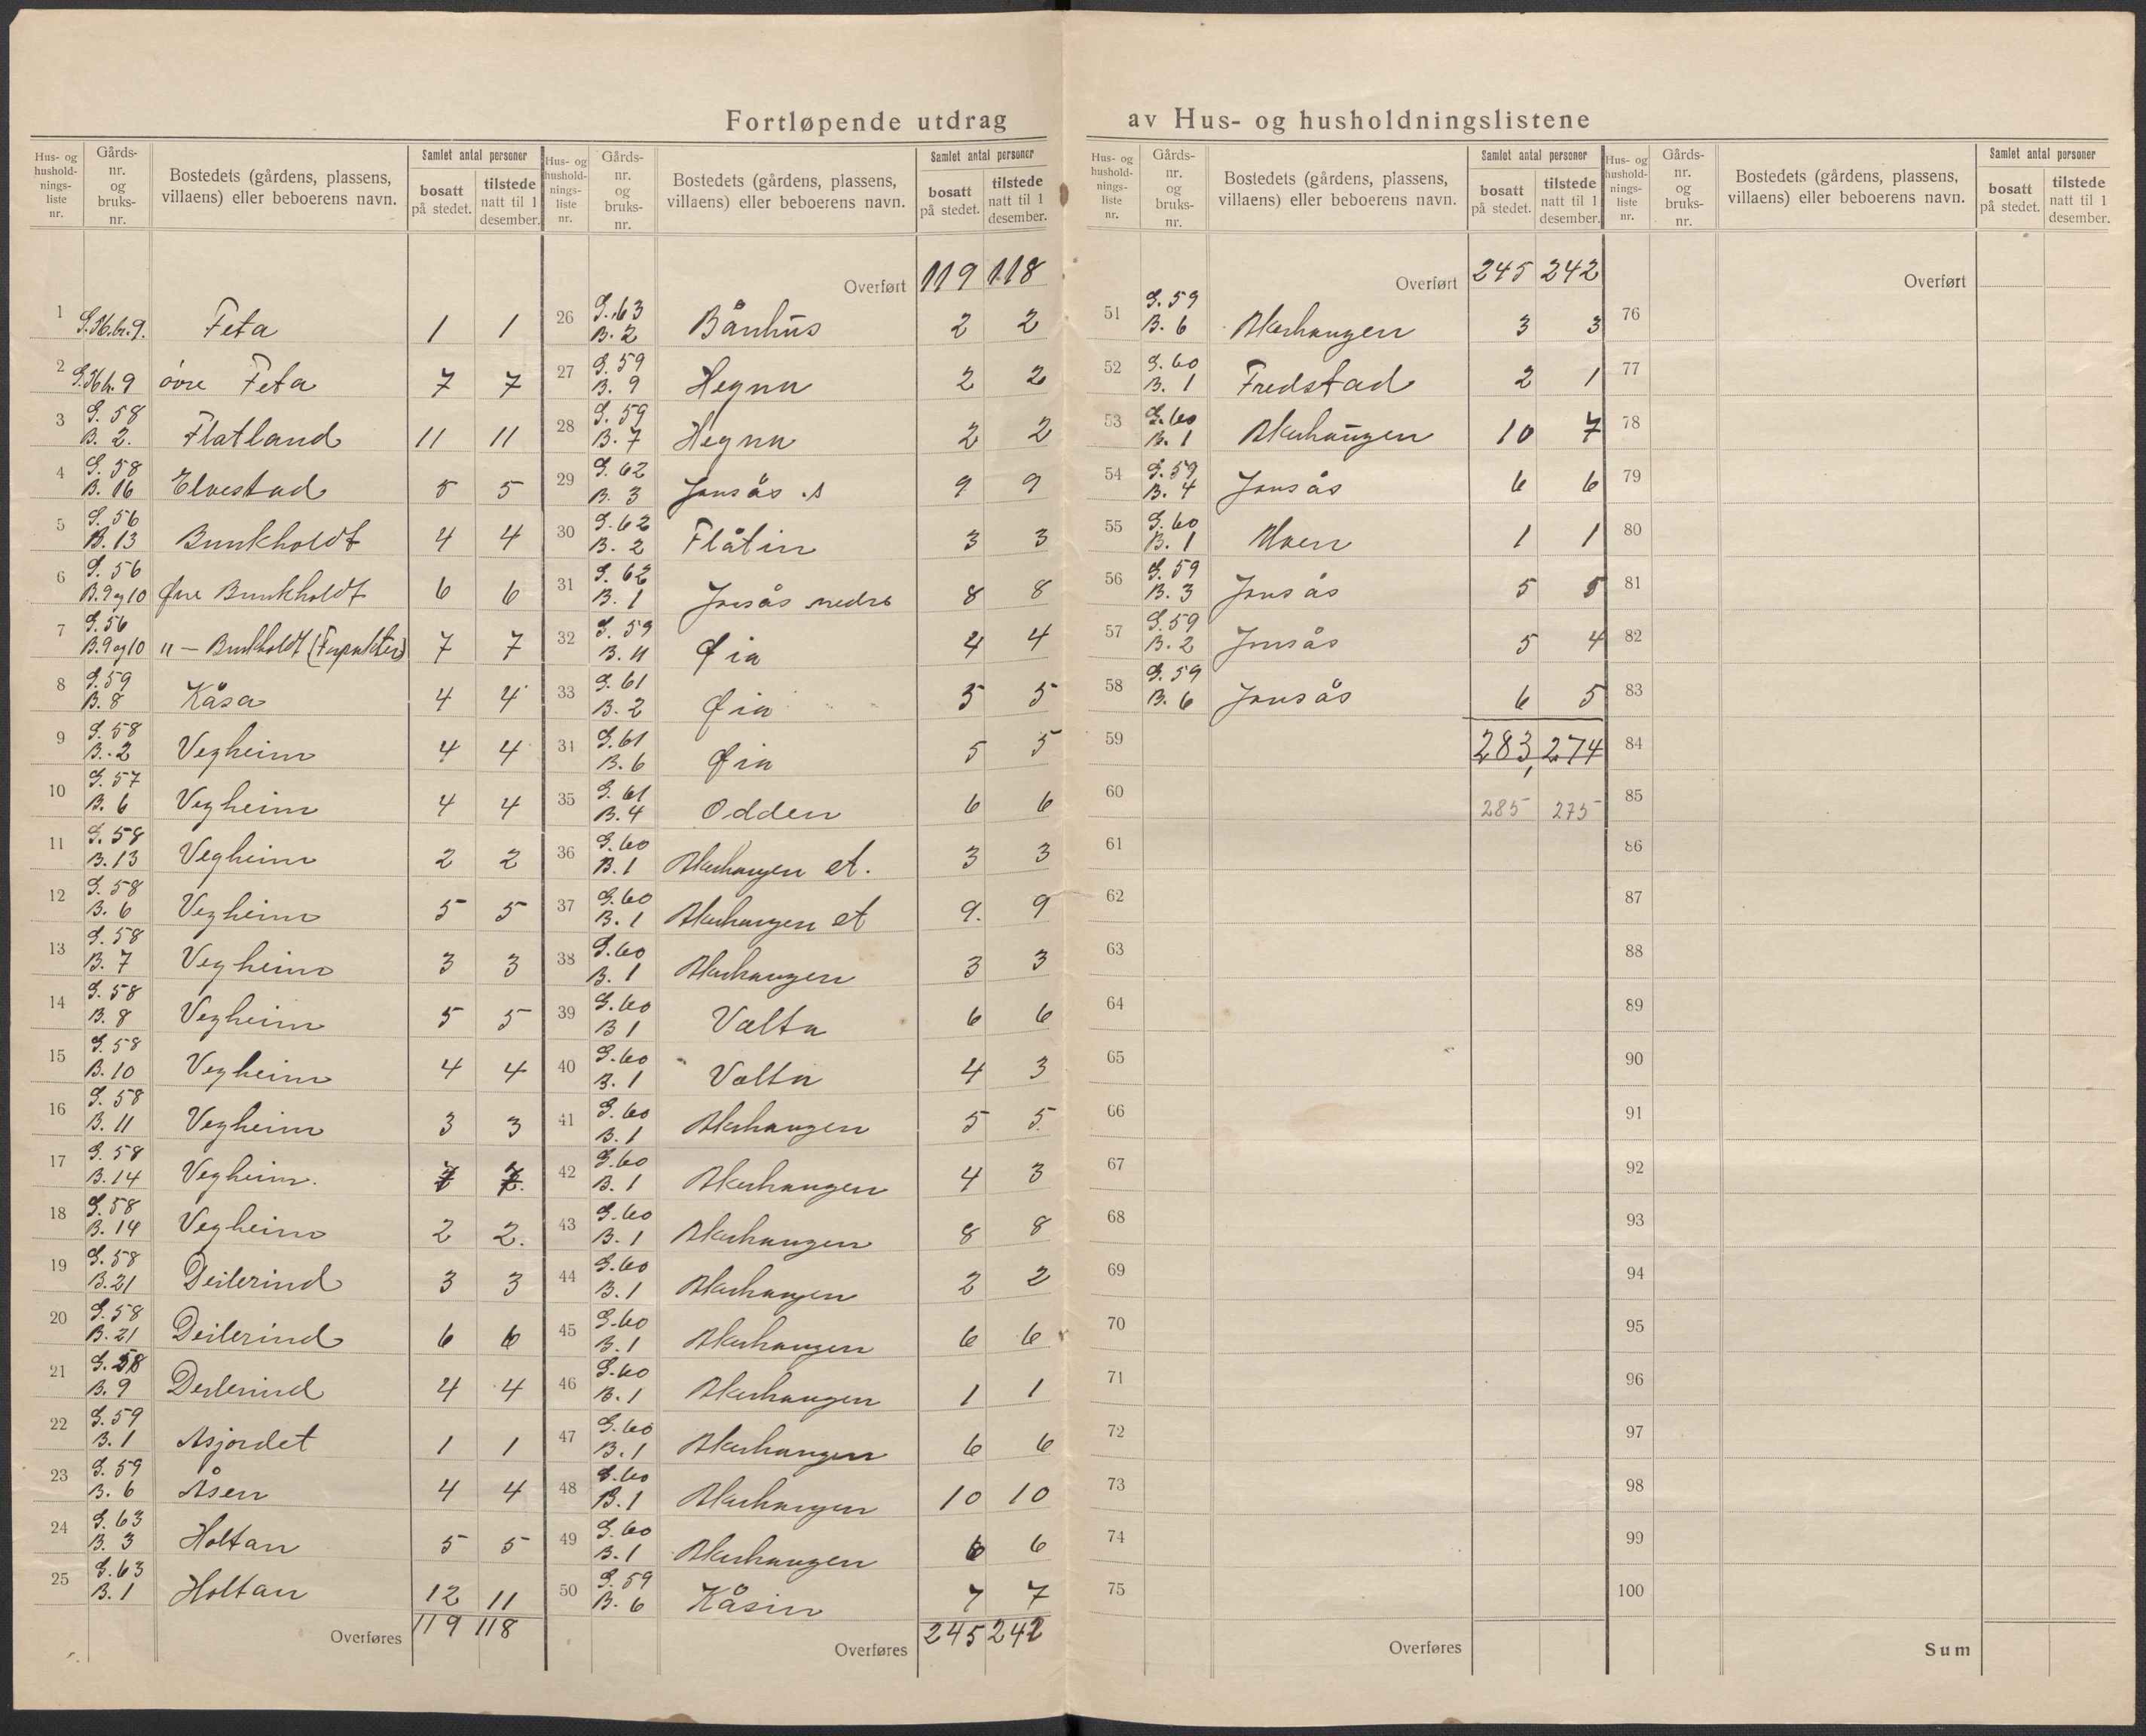 Fortløpende utdrag av Hus- og husholdningslistene
Hus- og hushold-nings-liste nr. | Gårds-nr. og bruks-nr. | Bostedets (gårdens, plassens, villaens) eller beboerens navn. | Samlet antal personer | bosatt på stedet. | tilstede natt til 1 desember.
1 G.56.br.9. Feta 1 1
2 G.56 br. 9 övre Feta 7 7
3 G. 58 B. 2. Flatland 11 11
4 G. 58 B. 16 Elvestad 5 5
5 G. 56 B. 13 Bunkholdt 4 4
6 G. 56 B. 9 og 10 Øvre Bunkholdt 6 6
7 G. 56 B. 9 og 10 " — Bunkholdt (Forpakter) 7 7
8 G. 59 B. 8 Kåsa 4 4
9 G. 58 B. 2 Vegheim 4 4
10 G. 57 B. 6 Vegheim 4 4
11 G. 58 B. 13 Vegheim 2 2
12 G. 58 B. 6 Vegheim 5 5
13 G. 58 B. 7 Vegheim 3 3
14 G. 58 B. 8 Vegheim 5 5
15 G. 58 B. 10 Vegheim 4 4
16 G. 58 B. 11 Vegheim 3 3
17 G. 58 B. 14 Vegheim.
18 G. 58 B. 14 Vegheim 2 2.
19 G. 58 B. 21 Deilerind 3 3
20 G. 58 B. 21 Deilerind 6 6
21 G. 58 B. 9 Deilerind 4 4
22 G. 59 B. 1 Asjordet 1 1
23 G. 59 B. 6 Åsen 4 4
24 G. 63 B. 3 Holtan 5 5
25 G. 63 B. 1 Holtan 12 11
Overføres 119 118
Hus- og hushold-nings-liste nr. | Gårds-nr. og bruks-nr. | Bostedets (gårdens, plassens, villaens) eller beboerens navn. | Samlet antal personer | bosatt på stedet. | tilstede natt til 1 desember.
Overført 119 118
26 G. 63 B. 2 Bånhus 2 2
27 G. 59 B. 9 Hegna 2 2
28 G. 59 B. 7 Hegna 2 2
29 G. 62 B. 3 Jonsås .s 9 9
30 G. 62 B. 2 Flåtin 3 3
31 G. 62 B. 1 Jonsås nedre 8 8
32 G. 59 B. 11 Øia 4 4
33 G. 61 B. 2 Øia 5 5
34 G. 61 B. 6 Øia 5 5
35 G. 61 B. 4 Odden 6 6
36 G. 60 B. 1 Akerhaugen et. 3 3
37 G. 60 B. 1 Akerhaugen et 9. 9
38 G. 60 B. 1 Akerhaugen 3 3
39 G. 60 B 1 Valta 6 6
40 G. 60 B. 1 Valta 4 3
41 G. 60 B. 1 Akerhaugen 5 5
42 G. 60 B. 1 Akerhaugen 4 3
43 G. 60 B. 1 Akerhaugen 8 8
44 G. 60 B. 1 Akerhaugen 2 2
45 G. 60 B. 1 Akerhaugen 6 6
46 G. 60 B. 1 Akerhaugen 1 1
47 G. 60 B. 1 Akerhaugen 6 6
48 G. 60 B. 1 Akerhaugen 10 10
49 G. 60 B. 1 Akerhaugen 6 6
50 G. 59 B. 6 Kåsin 7 7
Overføres 245 242
Hus- og hushold-nings-liste nr. | Gårds-nr. og bruks-nr. | Bostedets (gårdens, plassens, villaens) eller beboerens navn. | Samlet antal personer | bosatt på stedet. | tilstede natt til 1 desember.
Overført 245 242
51 G. 59 B. 6 Akerhaugen 3 3
52 G. 60 B. 1 Fredstad 2 1
53 G. 60 B. 1 Akerhaugen 10 7
54 G. 59 B. 4 Jonsås 6 6
55 G. 60 B. 1 Moen 1 1
56 G. 59 B. 3 Jonsås 5 5
57 G. 59 B. 2 Jonsås 5 4
58 G. 59 B. 6 Jonsås 6 5
59 283, 274
60 285 275
61
62
63
64
65
66
67
68
69
70
71
72
73
74
75
Overføres
Hus- og hushold-nings-liste nr. | Gårds-nr. og bruks-nr. | Bostedets (gårdens, plassens, villaens) eller beboerens navn. | Samlet antal personer | bosatt på stedet. | tilstede natt til 1 desember.
Overført
76
77
78
79
80
81
82
83
84
85
86
87
88
89
90
91
92
93
94
95
96
97
98
99
100
Sum